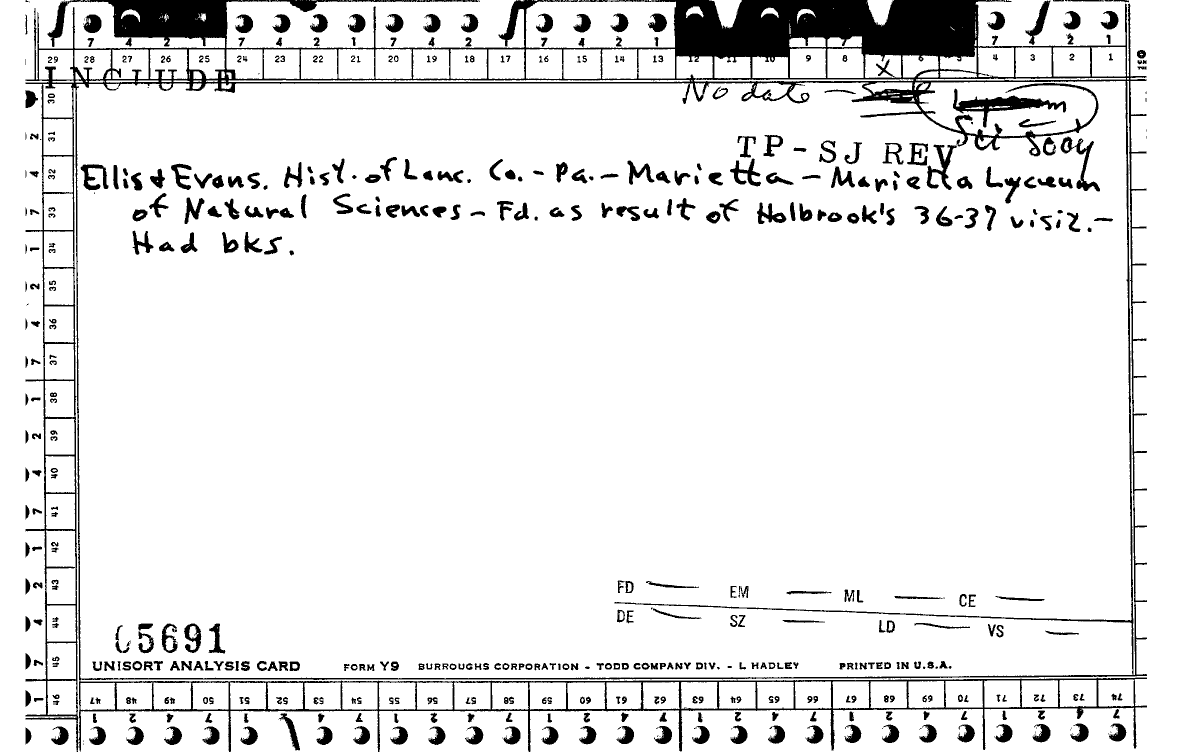 7 4 2 1 7 4 2 1 7 4 2 1 7 4 2 1 7 4 2 1
29 28 27 26 25 24 23 22 21 20 19 18 17 16 15 14 13 12 11 10 9 8 7 6 5 4 3 2 1
INCLUDE
No date — Lyceum
Sci Socy
TP-SJ REV
Ellis & Evans. Hist. of Lanc. Co. - Pa. - Marietta - Marietta Lyceum
of Natural Sciences - Fd. as result of Holbrook's 36-37 visit. -
Had bks.
30
31
32
33
34
35
36
37
38
39
40
41
42
43
44
45
46
FD — EM — ML — CE —
DE — SZ — LD — VS —
05691
UNISORT ANALYSIS CARD FORM Y9 BURROUGHS CORPORATION - TODD COMPANY DIV. - L HADLEY PRINTED IN U.S.A.
47 48 49 50 51 52 53 54 55 56 57 58 59 60 61 62 63 64 65 66 67 68 69 70 71 72 73 74